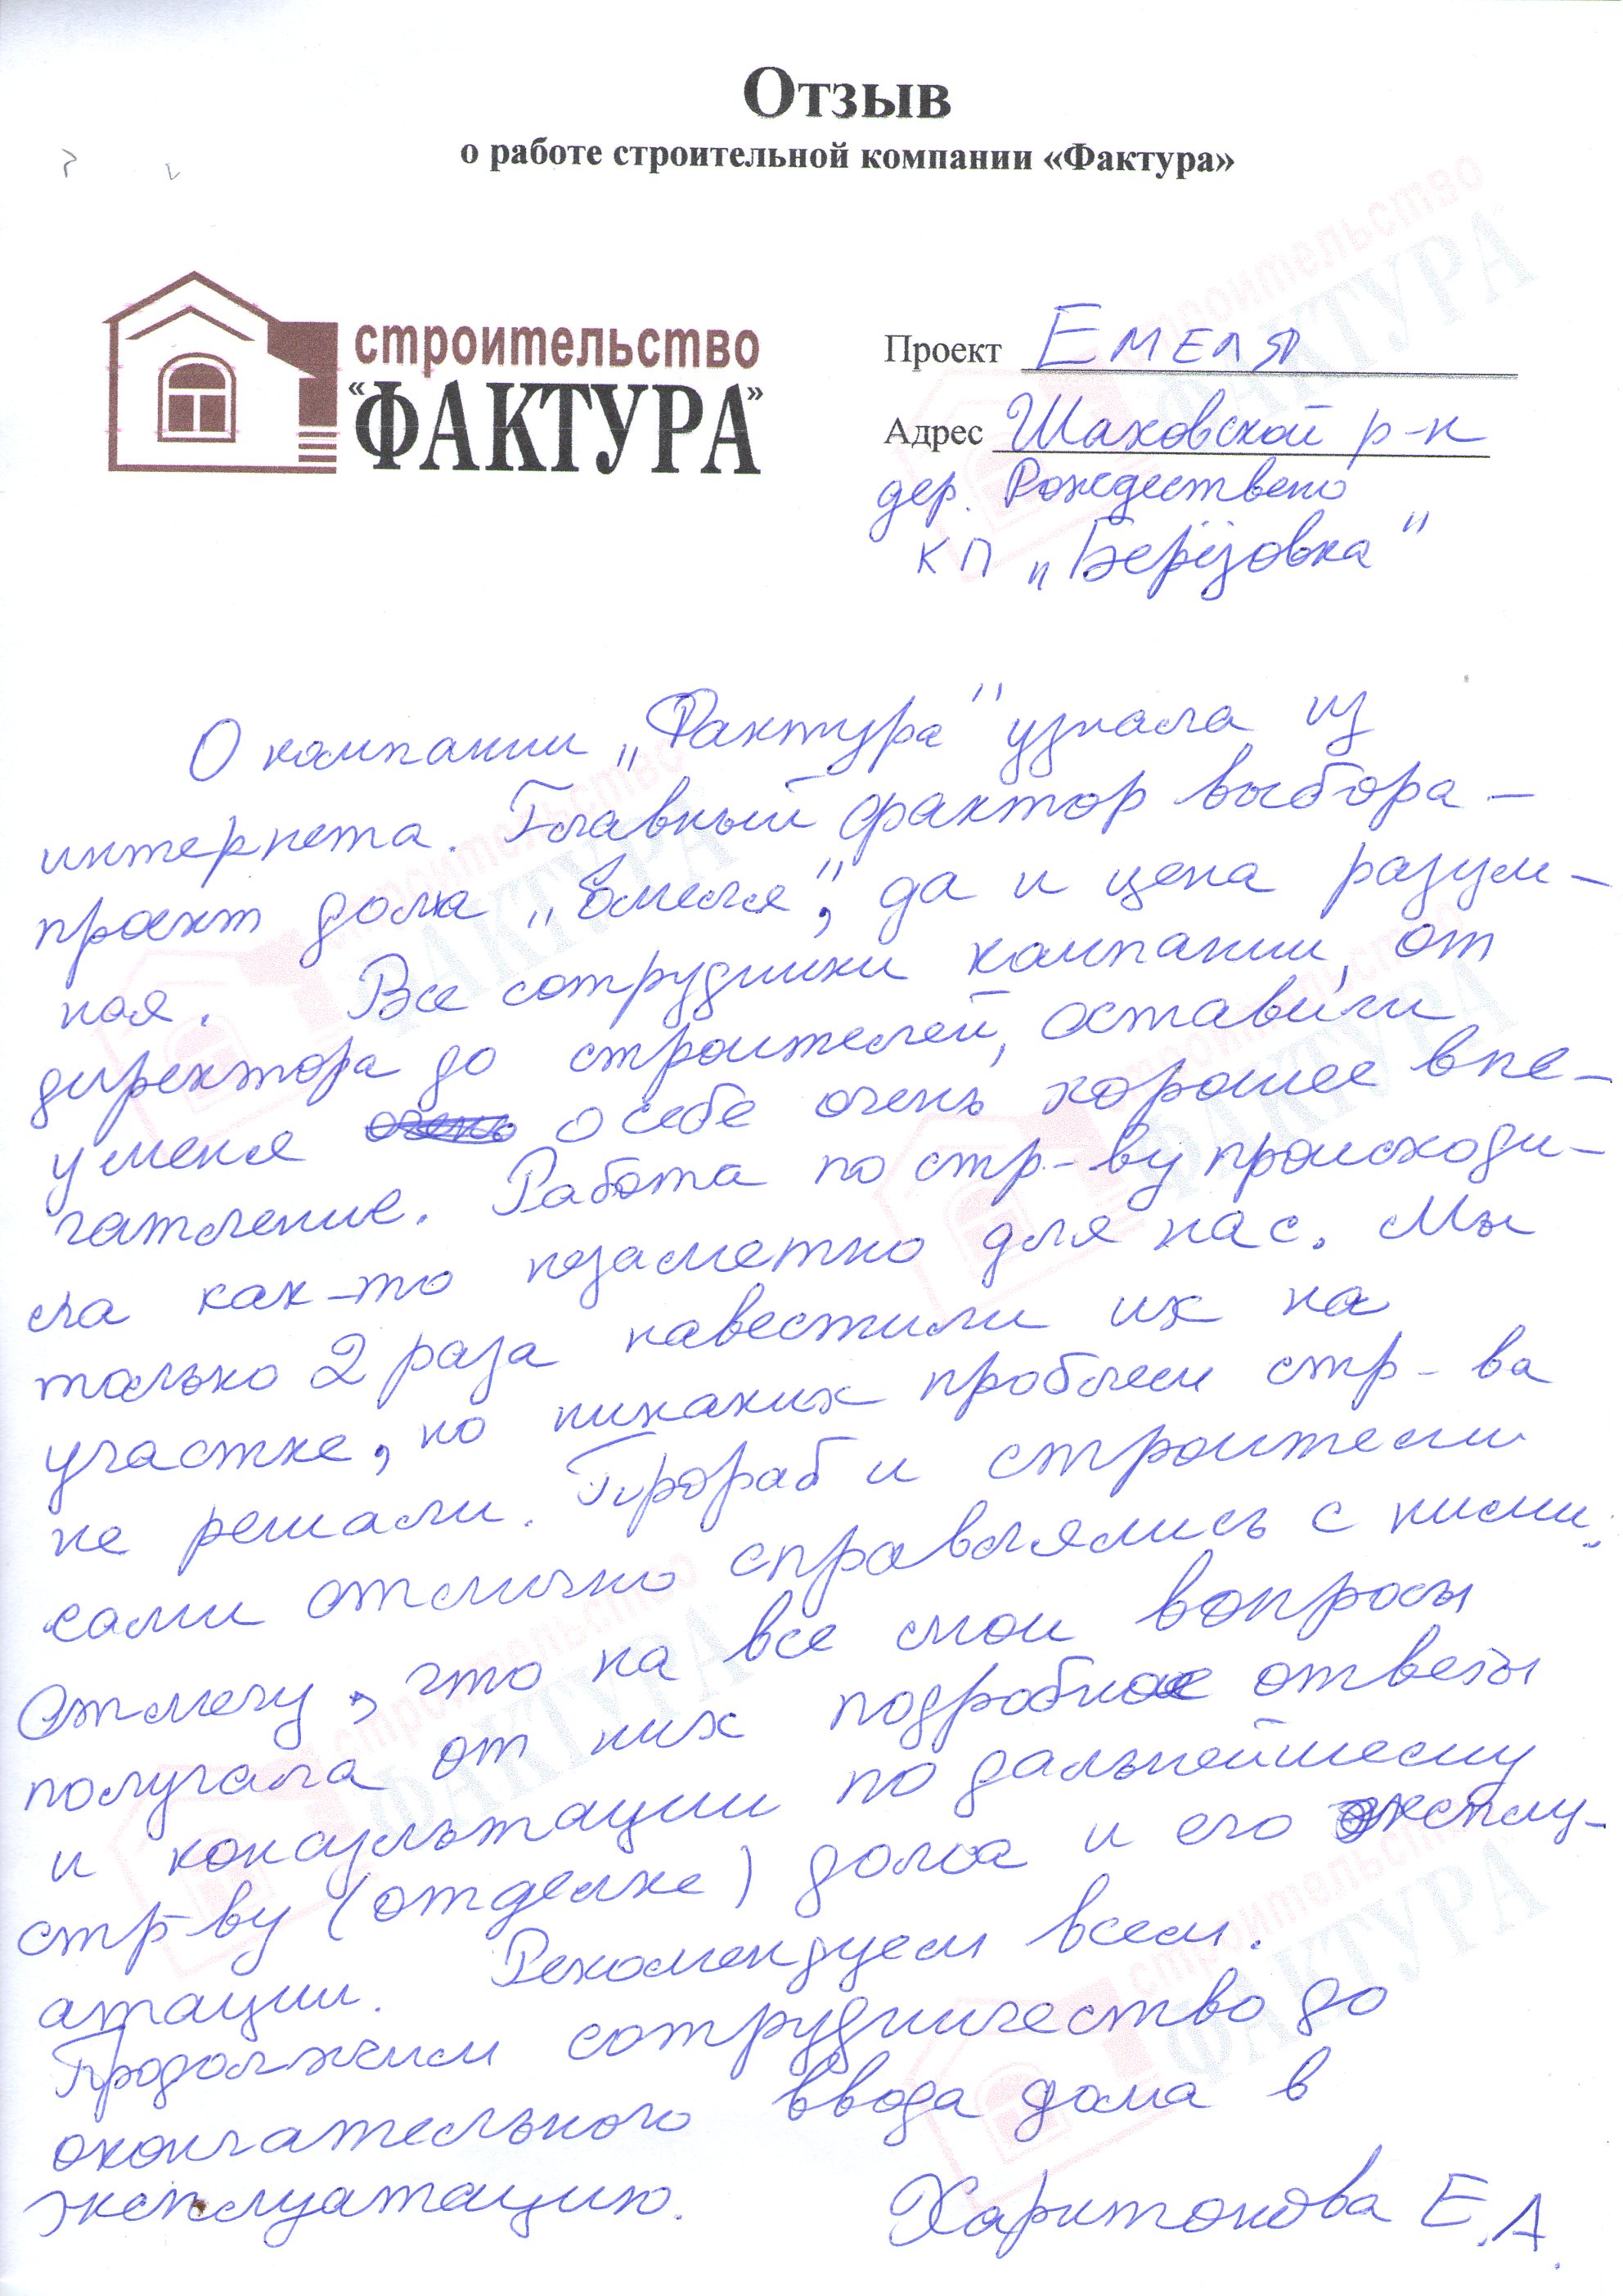 Отзыв
о работе строительной компании «Фактура»
строительство
"ФАКТУРА"
Проект Емеля
Адрес Шаховской р-н
дер. Рождествено
КП „Берёзовка"
О компании „Фактура" узнала из
интернета. Главный фактор выбора –
проект дома „Емеля", да и цена разум-
ная. Все сотрудники компании, от
директора до строителей, оставили
у меня о себе очень хорошее впе-
чатление. Работа по стр-ву происходи-
ла как-то незаметно для нас. Мы
только 2 раза навестили их на
участке, но никаких проблем стр-ва
не решали. Прораб и строители
сами отлично справлялись с ними.
Отмечу, что на все мои вопросы
получала от них подробные ответы
и консультации по дальнейшему
стр-ву (отделке) дома и его эксплу-
атации. Рекомендуем всем.
Продолжим сотрудничество до
окончательного ввода дома в
эксплуатацию.
Харитонова Е.А.